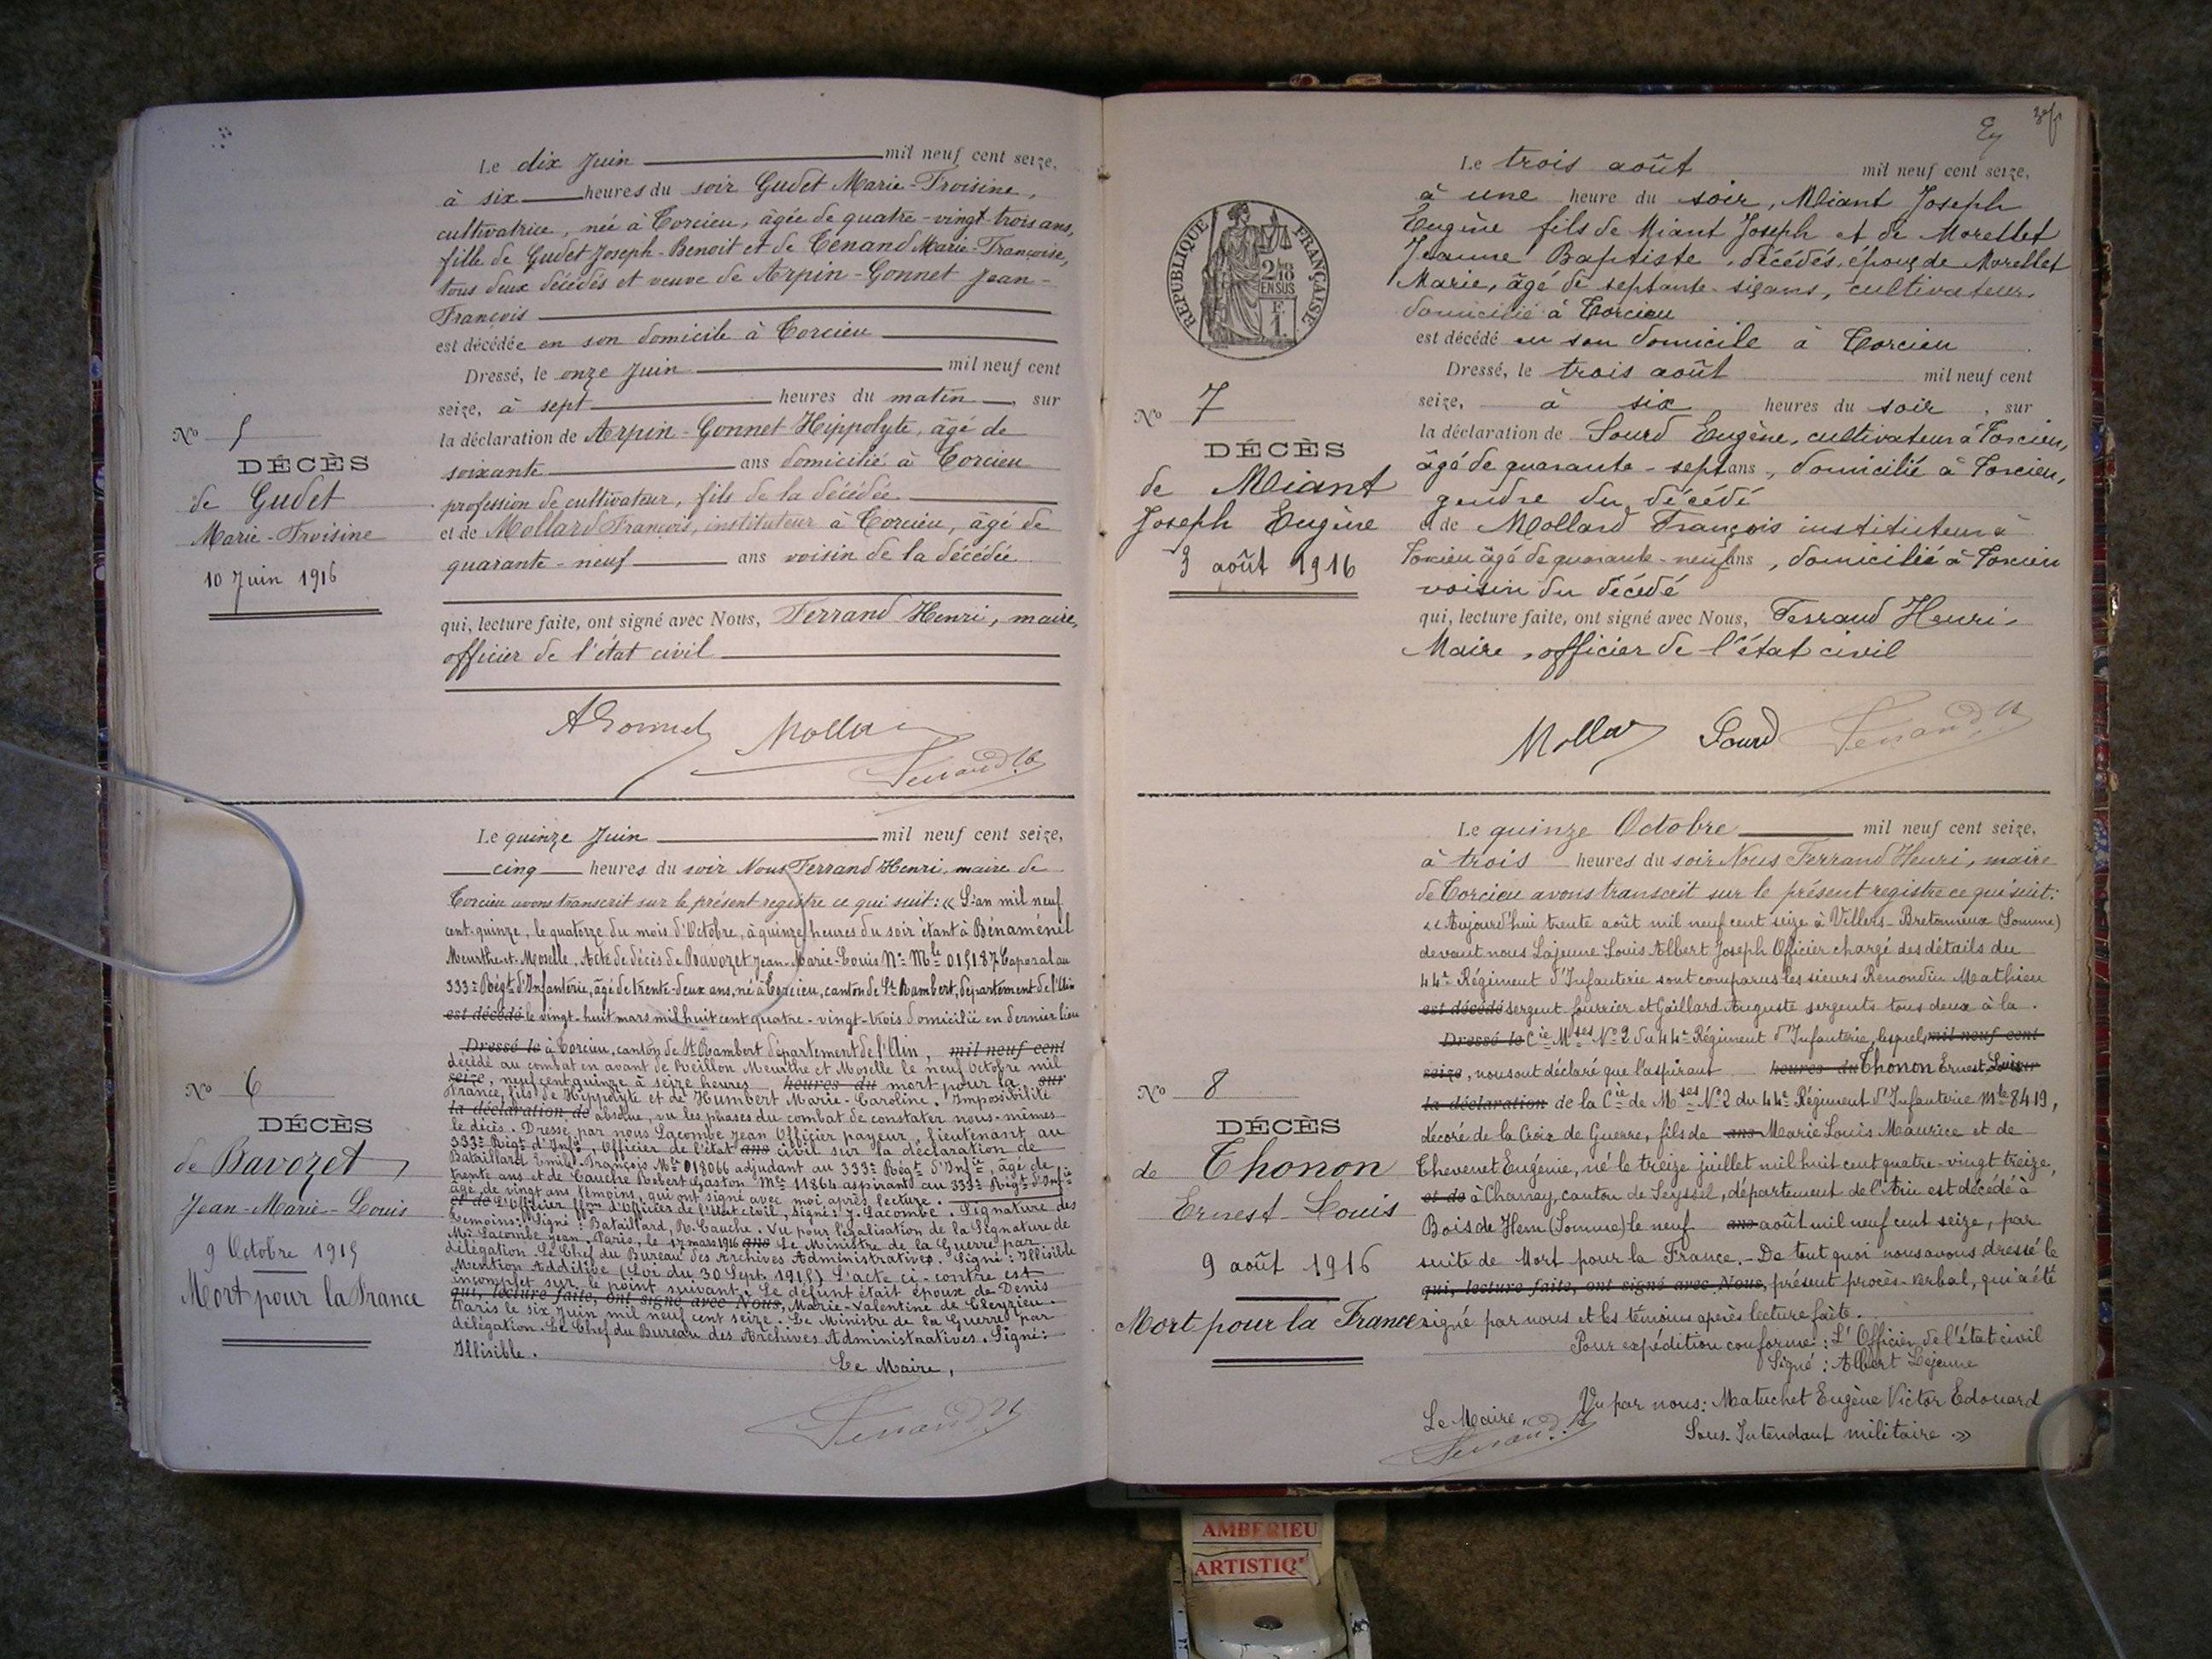 Le dix Juin mil neuf cent seize,
à six heures du soir Gudet Marie-Froisine,
cultivatrice, née à Torcieu, âgée de quatre-vingt-trois ans,
fille de Gudet Joseph-Benoit et de Tenand Marie-Françoise,
tous deux décédés et veuve de Arpin-Gonnet Jean-
François
est décédée en son domicile à Torcieu
Dressé, le onze Juin mil neuf cent
seize, à sept heures du matin, sur
la déclaration de Arpin-Gonnet Hippolyte, âgé de
soixante ans domicilié à Torcieu
profession de cultivateur, fils de la décédée
et de Mollard François, instituteur à Torcieu, âgé de
quarante-neuf ans voisin de la décédée
qui, lecture faite, ont signé avec Nous, Ferrand Henri, maire,
officier de l'état civil
No 5
DÉCÈS
de Gudet
Marie-Froisine
10 Juin 1916
AGonnet Mollard
Ferrand H
Le quinze Juin mil neuf cent seize,
cinq heures du soir Nous Ferrand Henri, maire de
Torcieu avons transcrit sur le présent registre ce qui suit: « L'an mil neuf
cent-quinze, le quatorze du mois d'Octobre, à quinze heures du soir étant à Bénaménil
Meurthe-et-Moselle, Acte de décès de Bavozet Jean-Marie-Louis No Mle 015187 Caporal au
333e Régt d'Infanterie, âgé de trente-deux ans, né à Torcieu, canton de St Rambert, département de l'Ain
est décédé le vingt-huit mars mil huit cent quatre-vingt-trois domicilié en dernier lieu
Dressé le à Torcieu, canton de St Rambert département de l'Ain, mil neuf cent
décédé au combat en avant de Veillon Meurthe et Moselle le neuf Octobre mil
seize, neuf cent quinze à seize heures heures du mort pour la sur
France, fils de Hippolyte et de Humbert Marie-Caroline. Impossibilité
la déclaration de absolue, vu les phases du combat de constater nous-mêmes
le décès. Dressé par nous Lacombe Jean Officier payeur, lieutenant au
333e Régt d'Infie, Officier de l'état ans civil sur la déclaration de
Bataillard Emile-François Mle 018066 adjudant au 333e Régt d'Infie, âgé de
trente ans et de Cauche Robert Gaston Mle 11864 aspirant au 333e Régt d'Infie
âgé de vingt ans témoins, qui ont signé avec moi après lecture.
et de L'Officier ffons d'Officier de l'état civil, Signé: J. Lacombe. Signature des
témoins: Signé: Bataillard, R. Cauche. Vu pour légalisation de la Signature de
Mr Lacombe Jean. Paris, le 17 mars 1916 ans Le Ministre de la Guerre par
délégation Le Chef du Bureau des Archives Administratives. Signé: Illisible
Mention Additive (Loi du 30 Sept. 1915) L'acte ci-contre est
incomplet sur le point suivant. Le défunt était époux de Denis
qui, lecture faite, ont signé avec Nous, Marie-Valentine de Cleyzieu.
Paris le six Juin mil neuf cent seize. Le Ministre de la Guerre par
délégation. Le Chef du Bureau des Archives Administratives. Signé:
Illisible.
Le Maire,
Ferrand H
No 6
DÉCÈS
de Bavozet
Jean-Marie-Louis
9 Octobre 1915
Mort pour la France
RÉPUBLIQUE FRANÇAISE
2/10
EN SUS
F.
1.
Le trois août mil neuf cent seize,
à une heure du soir, Miant Joseph
Eugène fils de Miant Joseph et de Morellet
Jeanne Baptiste, décédés, époux de Morellet
Marie, âgé de septante-six ans, cultivateur
domicilié à Torcieu
est décédé en son domicile à Torcieu
Dressé, le trois août mil neuf cent
seize, à six heures du soir, sur
la déclaration de Sourd Eugène, cultivateur à Torcieu,
âgé de quarante-sept ans, domicilié à Torcieu,
gendre du décédé
et de Mollard François instituteur à
Torcieu âgé de quarante-neuf ans, domicilié à Torcieu
voisin du décédé
qui, lecture faite, ont signé avec Nous, Ferrand Henri,
Maire, officier de l'état civil
No 7
DÉCÈS
de Miant
Joseph Eugène
3 août 1916
Mollard Sourd Ferrand H
Le quinze Octobre mil neuf cent seize,
à trois heures du soir Nous Ferrand Henri, maire
de Torcieu avons transcrit sur le présent registre ce qui suit:
« Aujourd'hui trente août mil neuf cent seize à Villers-Bretonneux (Somme)
devant nous Lajeune Louis Albert Joseph Officier chargé des détails du
44e Régiment d'Infanterie sont comparus les sieurs Renondin Mathieu
est décédé sergent fourrier et Gaillard Auguste sergents tous deux à la
Dressé le Cie Mses No 2 du 44e Régiment d'Infanterie, lesquels mil neuf cent
seize, nous ont déclaré que l'aspirant heures du Thonon Ernest Louis sur
la déclaration de la Cie de Mses No 2 du 44e Régiment d'Infanterie Mle 8419,
décoré de la Croix de Guerre, fils de ans Marie Louis Maurice et de
Thevenet Eugénie, né le treize juillet mil huit cent quatre-vingt treize,
et de à Chanay, canton de Seyssel, département de l'Ain est décédé à
Bois de Hem (Somme) le neuf ans août mil neuf cent seize, par
suite de Mort pour la France. De tout quoi nous avons dressé le
qui, lecture faite, ont signé avec Nous, présent procès-verbal, qui a été
signé par nous et les témoins après lecture faite.
Pour expédition conforme: L'Officier de l'état civil
Signé: Albert Lejeune
Vu par nous: Matuchet Eugène Victor Edouard
Sous-Intendant militaire »
Le Maire,
Ferrand H
No 8
DÉCÈS
de Thonon
Ernest-Louis
9 août 1916
Mort pour la France
AMBERIEU
ARTISTIQ